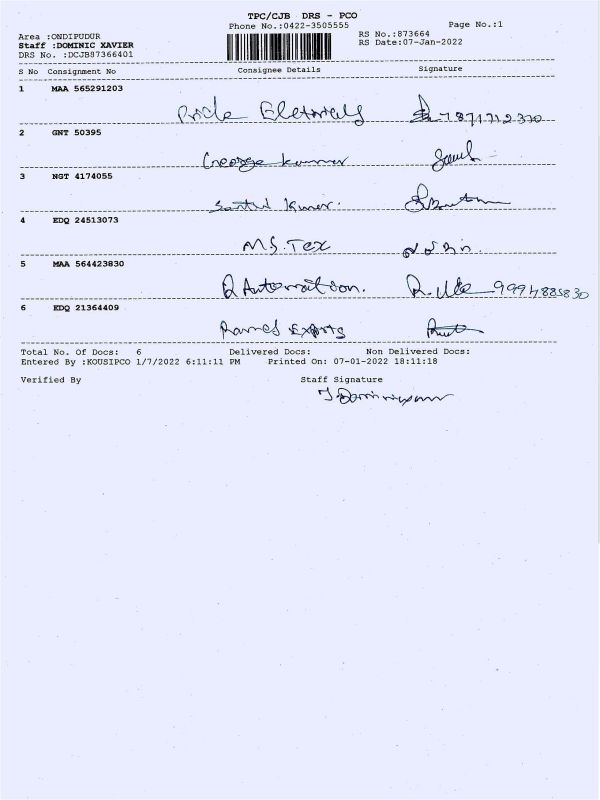 TPC/CJB DRS - PCO
Phone No.:0422-3505555 Page No.:1
Area :ONDIPUDUR RS No.:873664
Staff :DOMINIC XAVIER RS Date:07-Jan-2022
DRS No. :DCJB87366401
S No Consignment No Consignee Details Signature
1 MAA 565291203
Pride Eletricals 7871712330
2 GNT 50395
George kumar
3 NGT 4174055
Senthil kumar.
4 EDQ 24513073
M.S. Tex
5 MAA 564423830
R Automation. 9994885830
6 EDQ 21364409
Rames Exports
Total No. Of Docs: 6 Delivered Docs: Non Delivered Docs:
Entered By :KOUSIPCO 1/7/2022 6:11:11 PM Printed On: 07-01-2022 18:11:18
Verified By Staff Signature